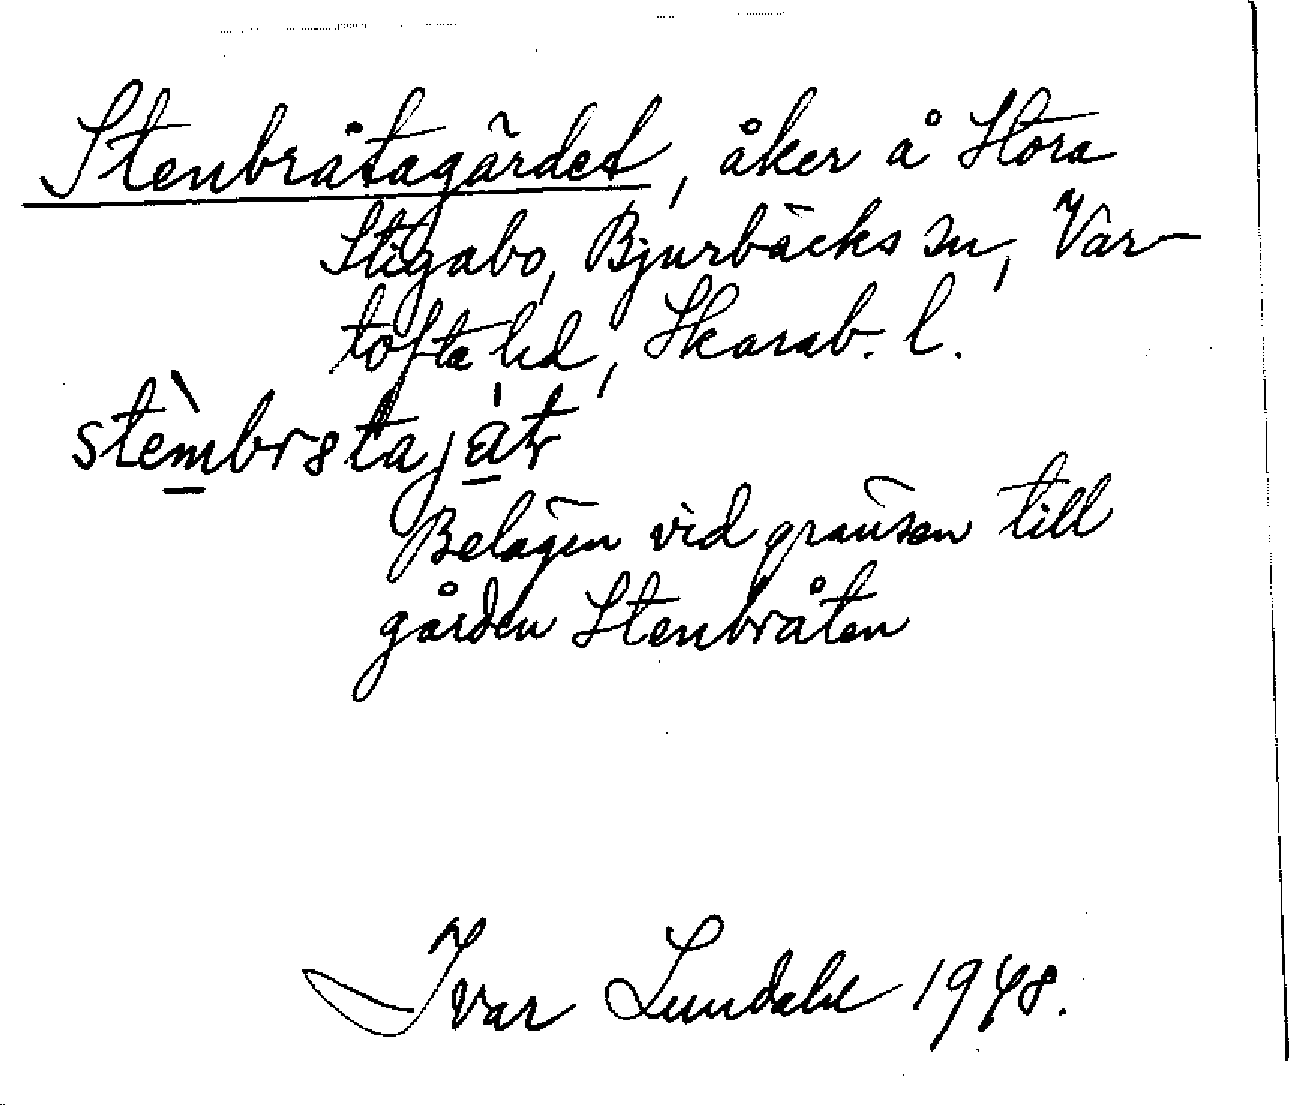 Stenbråtagärdet, åker å Stora
Stigabo, Bjurbäcks sn, Var-
tofta hd, Skarab. l.
stèmbr8tajät
Belägen vid gränsen till
gården Stenbråten
Ivar Lundahl 1948.